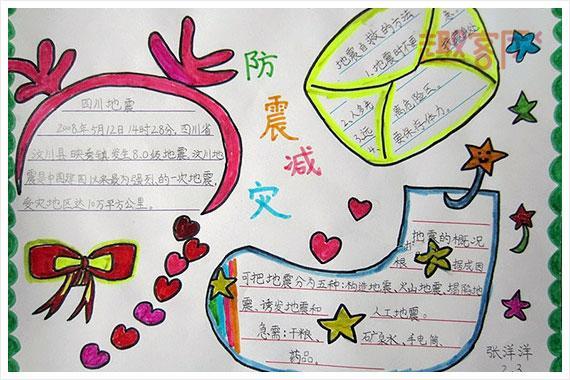 防
震
减
灾
四川地震
2008年5月12日14时28分,四川省
汶川县映秀镇发生8.0级地震,汶川地
震是中国建国以来最为强烈的一次地震,
受灾地区达10万平方公里。
地震自救的方法
1.地震时不要
2.人多先
离危险区。
3.远
4.
要保存体力。
地震的概况
根据成因
可把地震分为五种:构造地震、火山地震、塌陷地
震、诱发地震和人工地震。
急需:干粮、矿泉水、手电筒
药品。
张洋洋
2.3